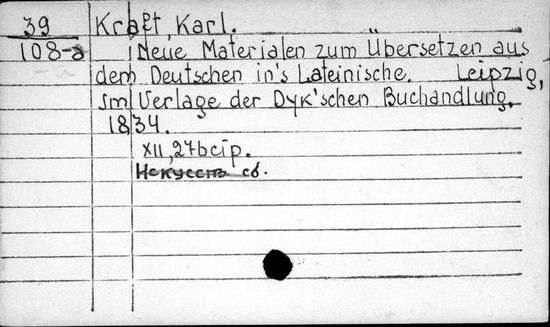 39 Kraft, Karl.
108-a Neue Materialen zum Übersetzen aus
dem Deutschen in's Lateinische. Leipzig,
Im Verlage der Dyk'schen Buchandlung.
1834.
XII, 276 стр.
Искусств сб.